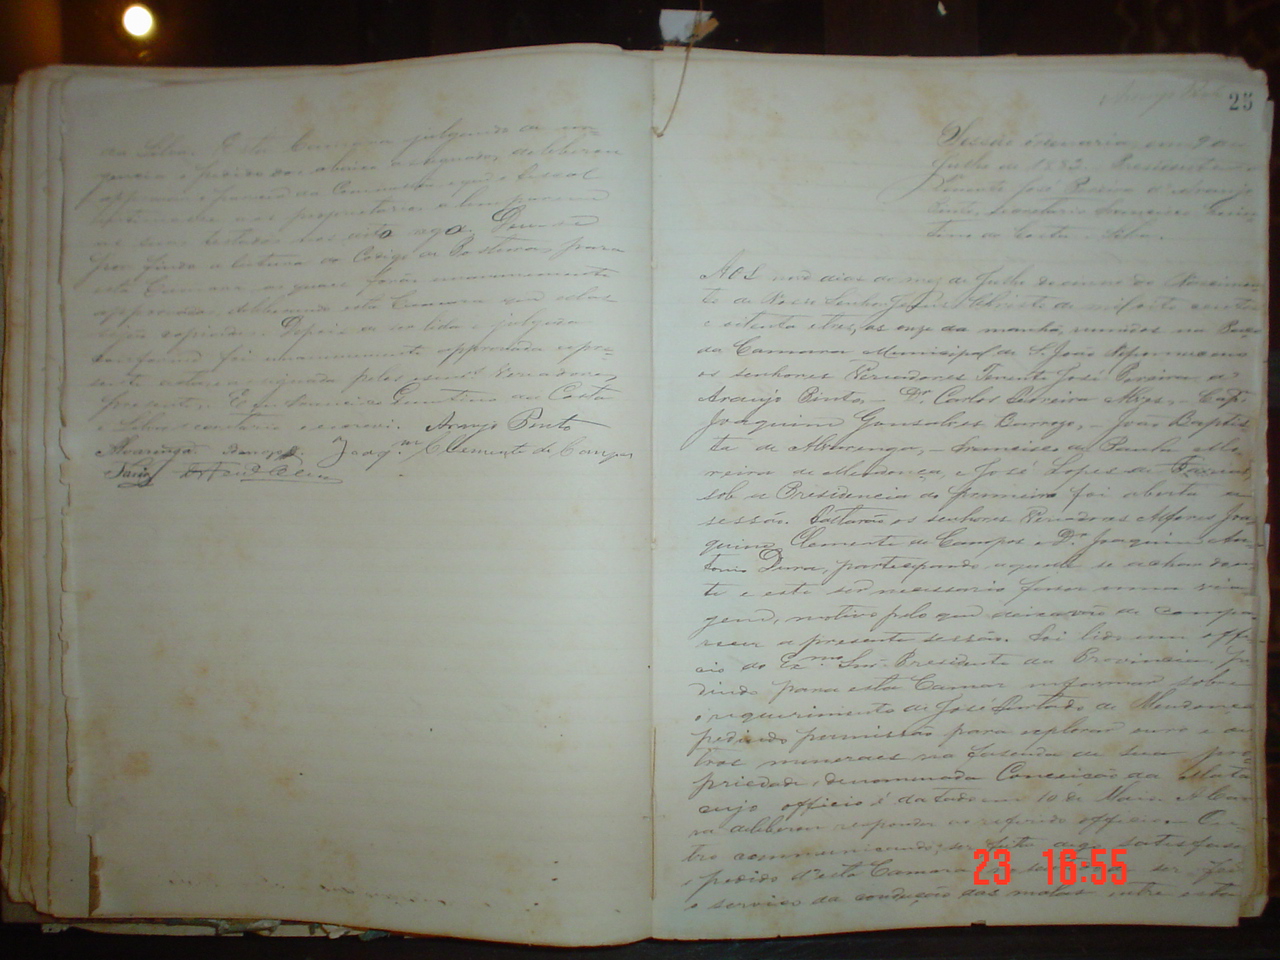 da Silva. Esta Camara julgando de ur-
gencia o pedido dos abaixo assignados, deliberou
approvar o parecer da Commissão e que o Fiscal
os proprietarios a limparem
as suas testadas
por finda a leitura do Codigo de Posturas para
esta Camara, as quaes forão unanimemente
approvadas, deliberando esta Camara que ellas
sejão copiadas. Depois de ser lida e julgada
conforme foi unanimemente approvada a pre-
sente acta e assignada pelos Vereadores
presentes. Eu Francisco Quintino da Costa
e Silva secretario o escrevi. Araujo Pinto
Alvarenga Joaqm. Clemente de Campos
Faria
25
Sessão ordinaria, em 9 de
Julho de 1883. Presidente
Tenente José Pereira d'Araujo
Pinto, secretario Francisco Quin-
tino da Costa e Silva.
Aos nove dias do mez de Julho do anno do Nascimen-
to de Nosso Senhor Jesus Christo de mil oito centos
e oitenta e tres, as onze da manhã, reunidos no Paço
da Camara Municipal de S. João Nepomuceno
os senhores Vereadores Tenente José Pereira de
Araujo Pinto, - Dr. Carlos Ferreira Alves, - Capm.
Joaquim Gonsalves - João Baptis-
ta de Alvarenga, - Francisco de Paula Mo-
reira de Mendonça, e José Lopes de Faria,
sob a Presidencia do primeiro foi aberta a
sessão. Faltarão os senhores Vereadores Alferes Joa-
quim Clemente de Campos e Dr. Joaquim An-
tonio Dutra, participando aquelle se achar doen-
te e este ser necessario fazer uma via-
gem, motivo pelo que deixavão de compa-
recer a presente sessão. Foi lido um offi-
cio do Exmo. Snr. Presidente da Provincia, pe-
dindo para esta Camara informar sobre
o requerimento de José Furtado de Mendonça
pedindo permissão para explorar ouro e ou-
tros mineraes na fazenda de sua pro-
priedade, denominada Conceição da Matta
cujo officio é datado em 10 de Maio. A Cama-
ra deliberou responder ao referido officio. - Ou-
tro communicando ser satisfeito
o pedido d'esta Camara ser feito
o serviço da condução das malas entre esta
23 16:55